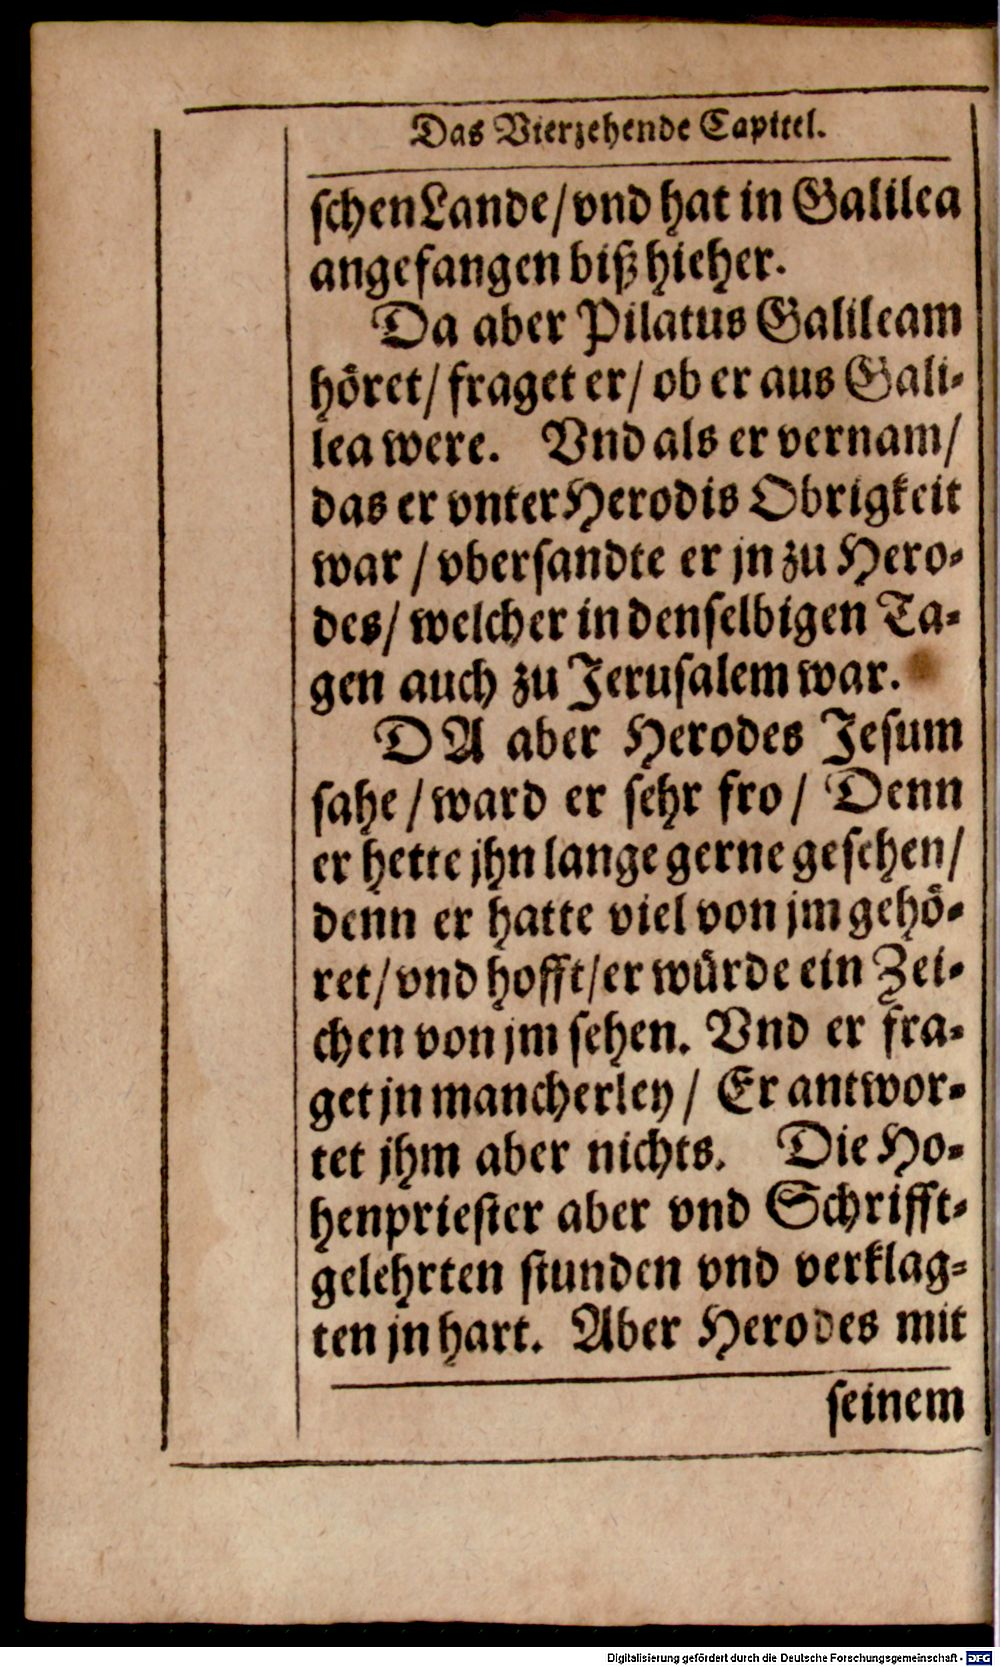 Das Vierzehende Capitel.
schen Lande/ vnd hat in Galilea
angefangen biß hieher.
Da aber Pilatus Galileam
höret/ fraget er/ ob er aus Gali-
lea were. Vnd als er vernam/
das er vnter Herodis Obrigkeit
war/ vbersandte er jn zu Hero-
des/ welcher in denselbigen Ta-
gen auch zu Jerusalem war.
DA aber Herodes Jesum
sahe/ ward er sehr fro/ Denn
er hette jhn lange gerne gesehen/
denn er hatte viel von jm gehö-
ret/ vnd hofft/ er würde ein Zei-
chen von jm sehen. Vnd er fra-
get jn mancherley/ Er antwor-
tet jhm aber nichts. Die Ho-
henpriester aber vnd Schrifft-
gelehrten stunden vnd verklag-
ten jn hart. Aber Herodes mit
seinem
Digitalisierung gefördert durch die Deutsche Forschungsgemeinschaft - DFG